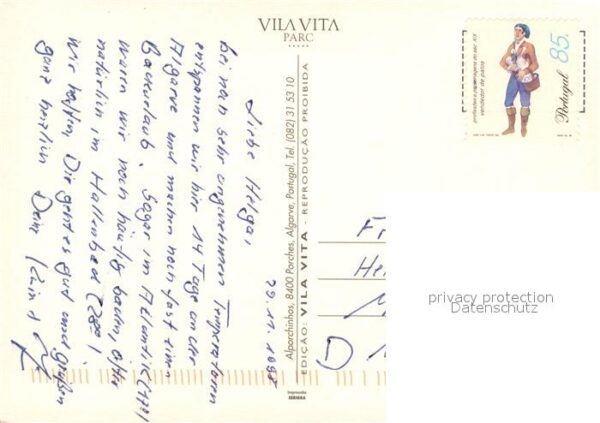 VILA VITA
PARC
Portugal 85.
profissões e personagens do séc. XIX
vendedor de patos
29.12.1995
Liebe Helga,
bei noch sehr angenehmen Temperaturen
entspannen wir hier 14 Tage an der
Algarve und machen noch fast einen
Badeurlaub. Sogar im Atlantik (17°)
waren wir noch häufig baden, öfter
natürlich im Hallenbad (28°).
Wir hoffen Dir geht es gut und grüßen
ganz herzlich Deine
Alporchinhos, 8400 Porches, Algarve, Portugal, Tel. (082) 31 53 10
EDIÇÃO: VILA VITA - REPRODUÇÃO PROIBIDA
D
privacy protection
Datenschutz